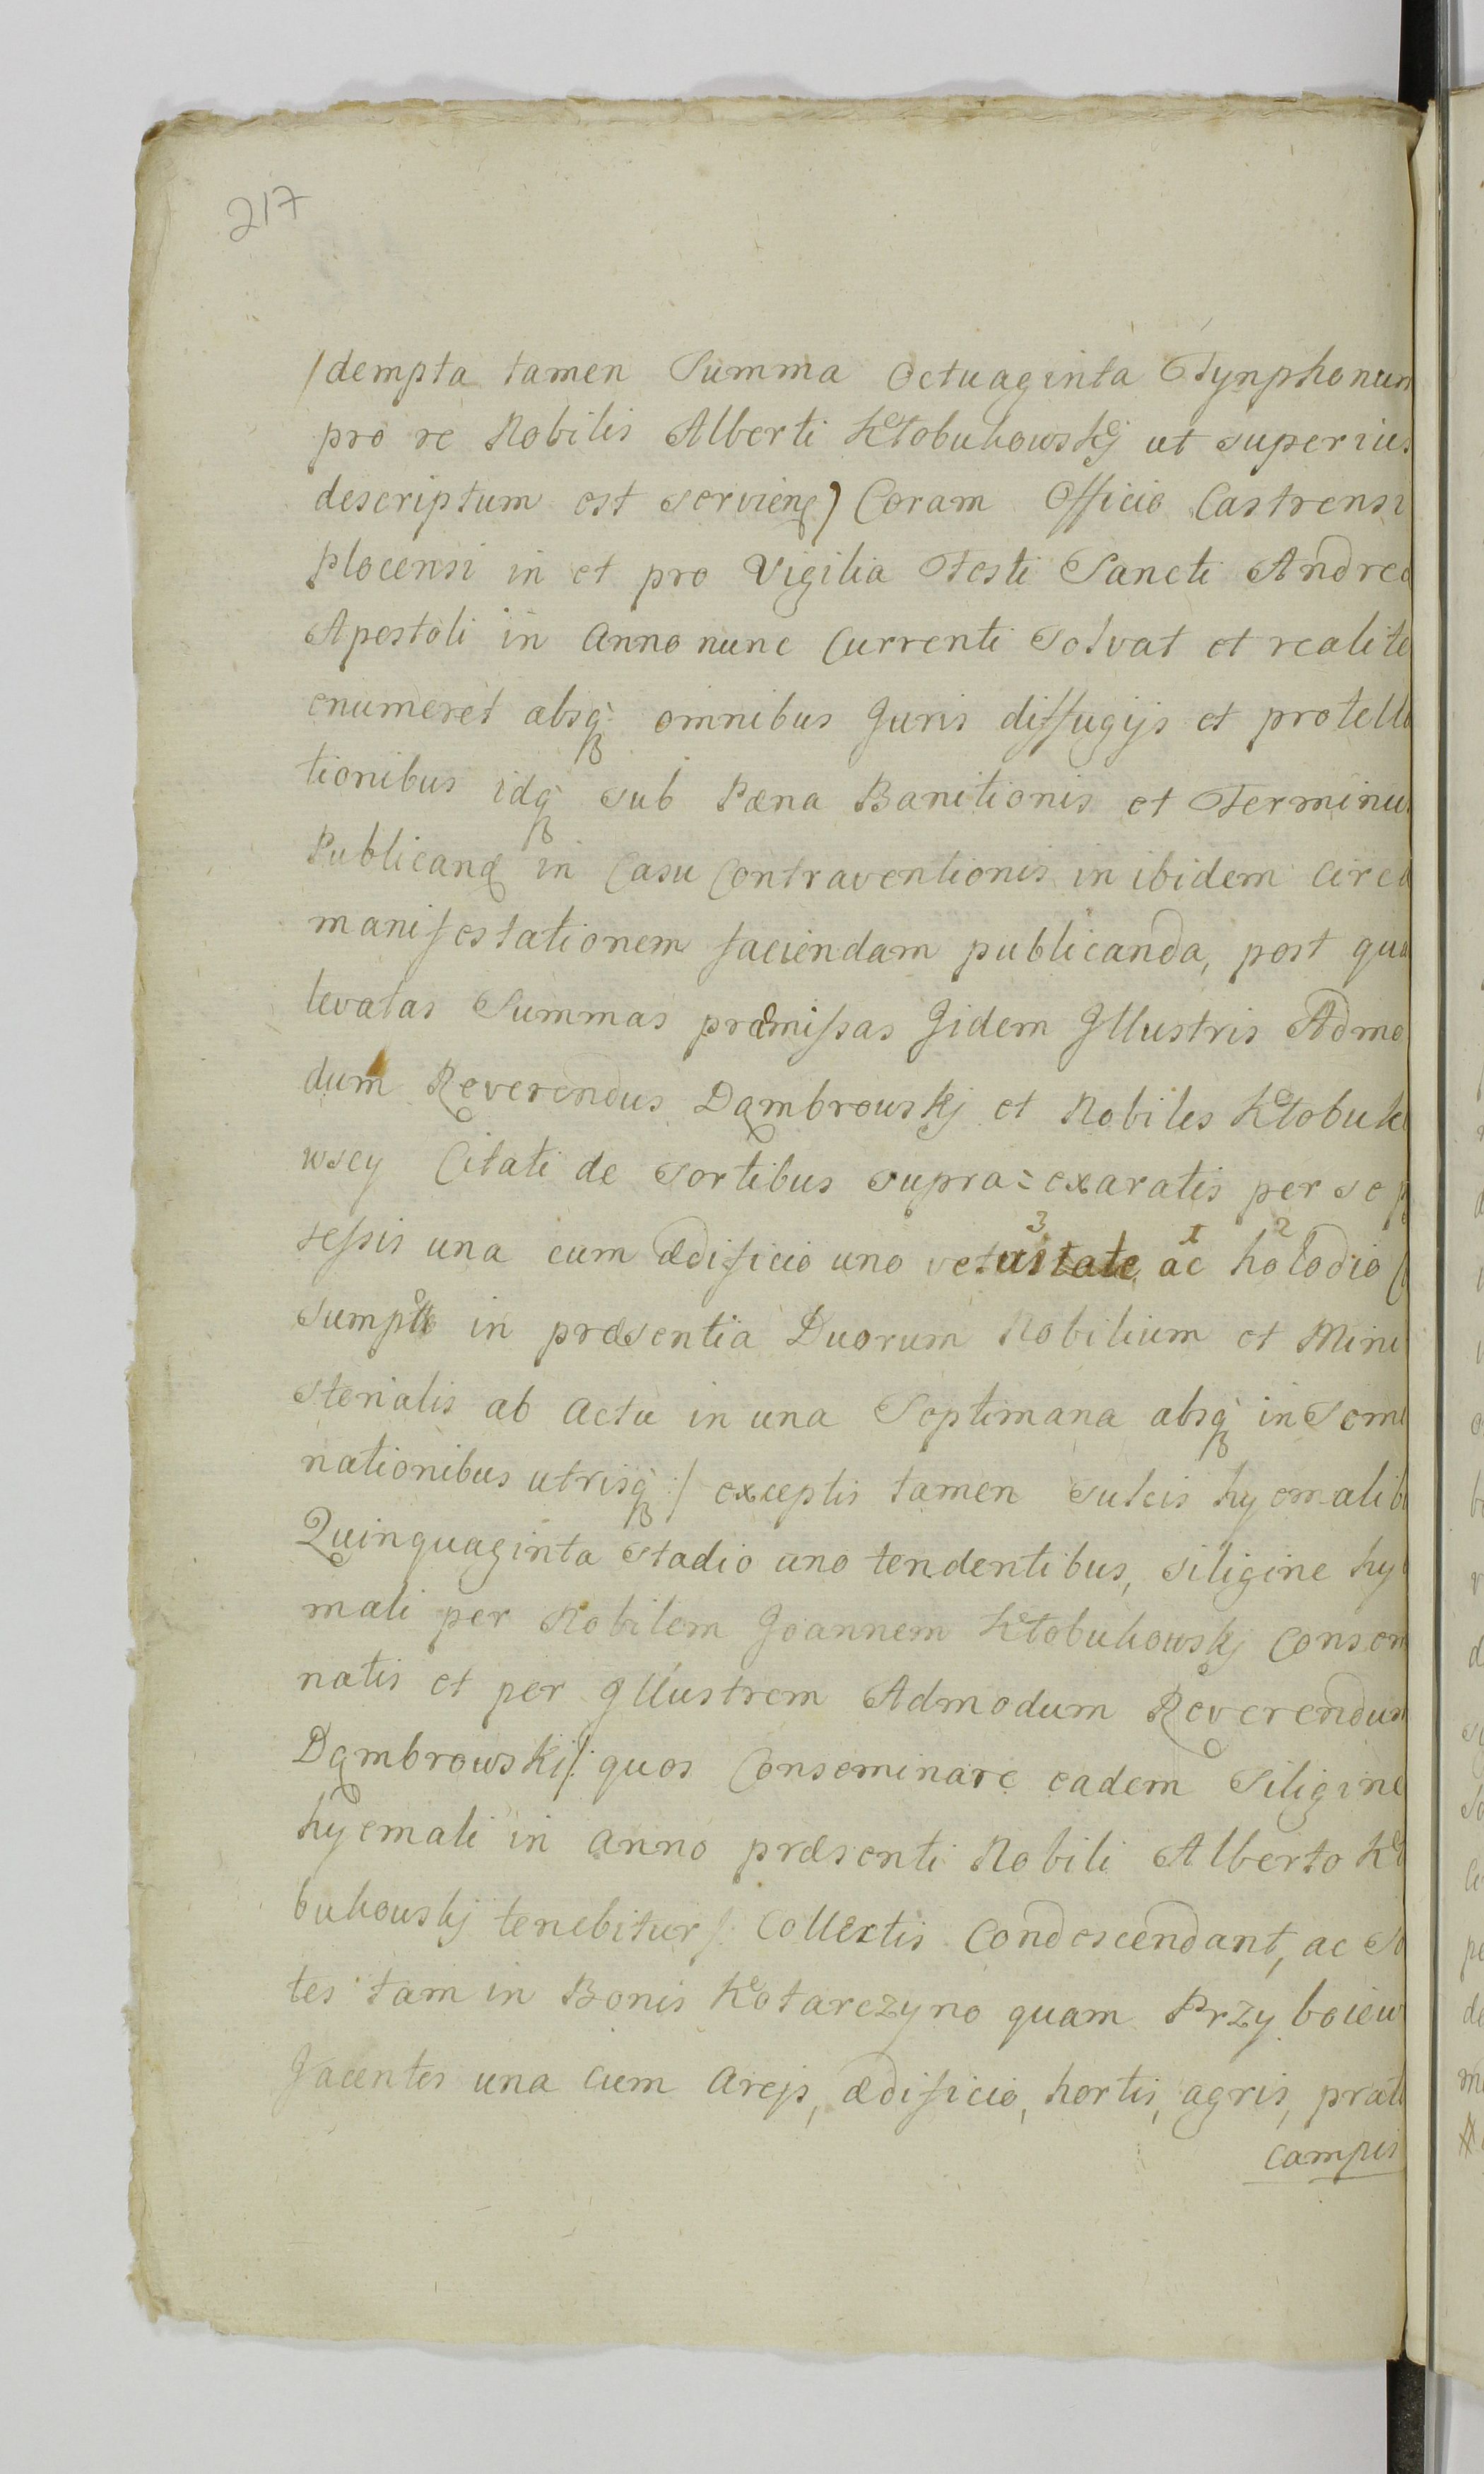 217
/dempta tamen Summa Octuaginta Tynphonum
pro re Nobilis Alberti Kłobukowskj ut superius
descriptum est servien) Coram Officio Castrensi
Plocensi in et pro Vigilia Festi Sancti Andreæ
Apostoli in Anno nunc Currenti Solvat et realite
enumeret absq omnibus Juris diffugijs et protella
tionibus idq sub Pæna Banitionis et Terminu
Publican in Casu Contraventionis in ibidem circa
manifestationem faciendam publicanda, post qua
levatas Summas præmissas Jidem Jllustris Admo
dum Reverendus Dąmbrowskj et Nobiles Kłobuko
wscy Citati de Sortibus supra=exaratis per se
sessis una cum ædificio uno vetustate ac holodio
sumpto in præsentia Duorum Nobilium et Mini
sterialis ab Actu in una Septimana absq in Semi
nationibus utrisq :/ exceptis tamen sulcis hyemalib
Quinquaginta Stadio uno tendentibus, siligine hye
mali per Nobilem Joannem Kłobukowskj Consemi
natis et per Jllustrem Admodum Reverendum
Dąmbrowski/: quos Conseminare eadem Siligine
hyemali in anno præsenti Nobili Alberto Kło
bukouskj tenebitur /: Collectis Condescendant, ac So
tes tam in Bonis Kotarczyno quam Przyboiew
Jacentes una cum Areis, ædificio, hortis, agris, prat
campis